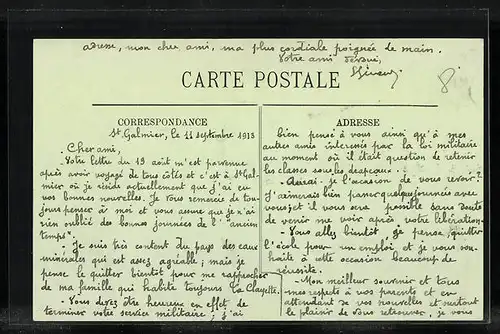 adresse, mon cher ami, ma plus cordiale poignée de main.
Votre ami dévoué,
CARTE POSTALE
CORRESPONDANCE
St Galmier, le 11 septembre 1913
Cher ami,
- Votre lettre du 19 août m'est parvenue
après avoir voyagé de tous côtés et c'est à St Gal-
mier où je réside actuellement que j'ai eu
vos bonnes nouvelles. Je vous remercie de tou-
jours penser à moi et vous assure que je n'ai
rien oublié des bonnes journées de l'"ancien
temps".
- Je suis très content du pays des eaux
minérales qui est assez agréable; mais je
pense le quitter bientôt pour me rapprocher
de ma famille qui habite toujours la Clayette.
- Vous devez être heureux en effet de
terminer votre service militaire; j'ai
ADRESSE
bien pensé à vous ainsi qu'à mes
autres amis intéressés par la loi militaire
au moment où il était question de retenir
les classes sous les drapeaux.
- Aurai-je l'occasion de vous revoir?
J'aimerais bien passer quelques journées avec
vous, et il vous sera possible sans doute
de venir me voir après votre libération.
- Vous allez bientôt je pense, quitter
l'école pour un emploi, et je vous sou-
haite à cette occasion beaucoup de
réussite.
- Mon meilleur souvenir et tous
mes respects à vos parents et en
attendant de vos nouvelles et surtout
le plaisir de vous retrouver, je vous